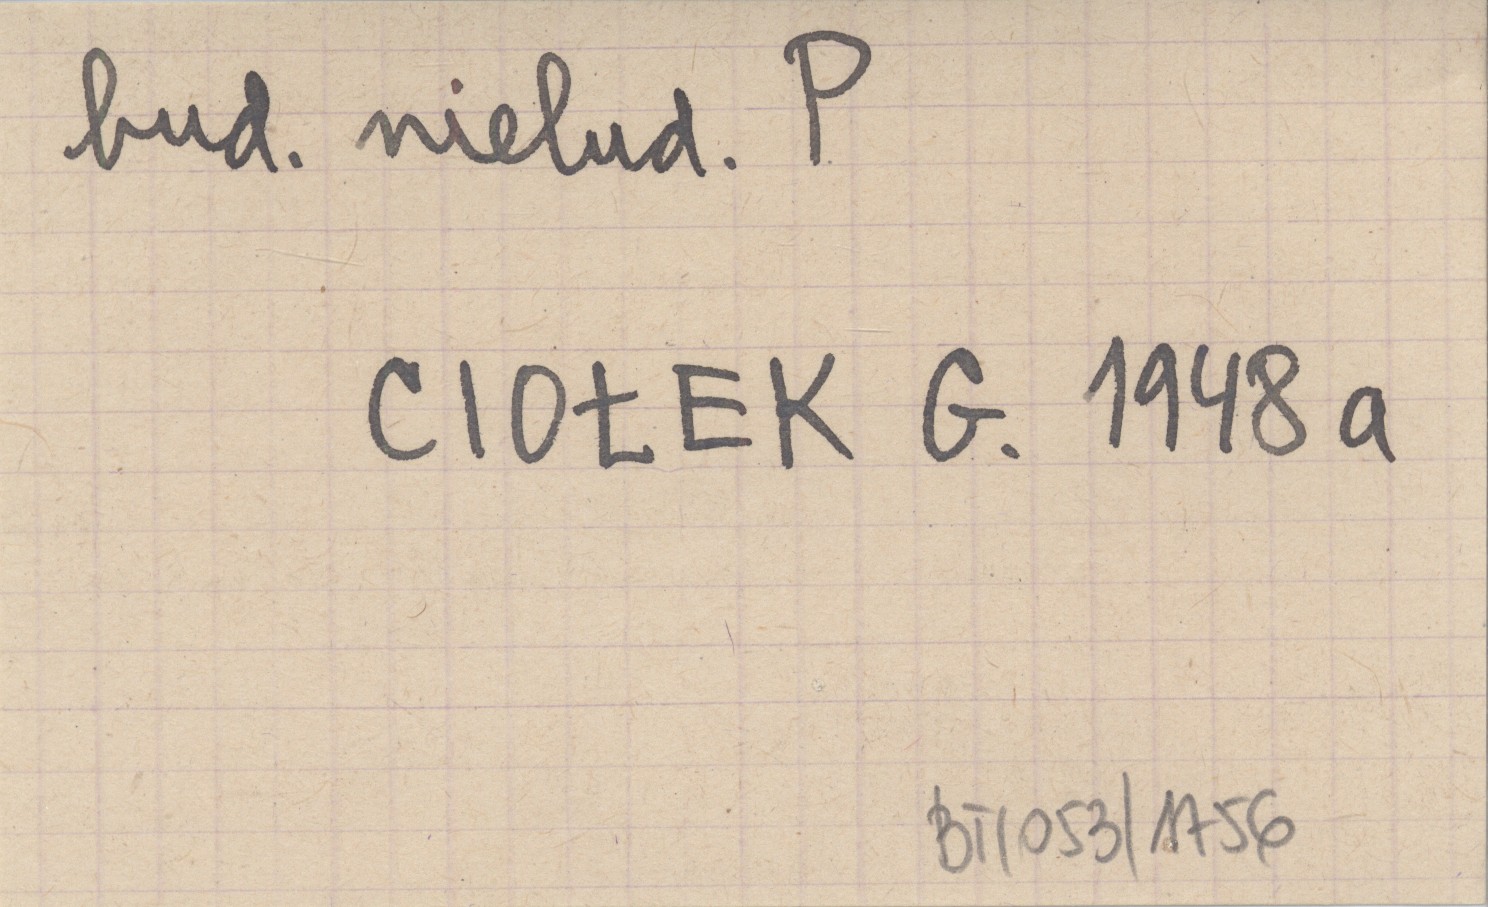 bud. nielud. P
CIOŁEK G. 1948 a
BT/053/1756